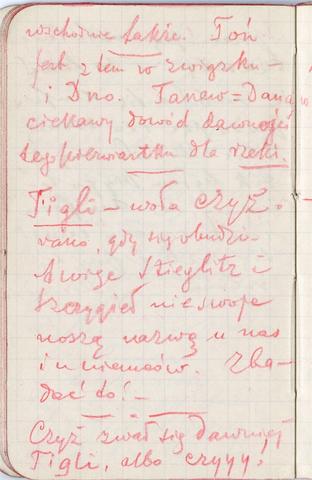 wschodnie także. Toń
jest z tem w związku –
i Dno. Tanew = Dana
ciekawy dowód dawności
tego pierwiastku dla rzeki.
Tigli – woła czyż.
rano, gdy się obudzi.
A więc Stieglitz i
Szczygieł nie swoje
noszą nazwy u nas
i u niemców. Zba-
dać to! –
Czyż zwał się dawniej
Tigli, albo czyyy.